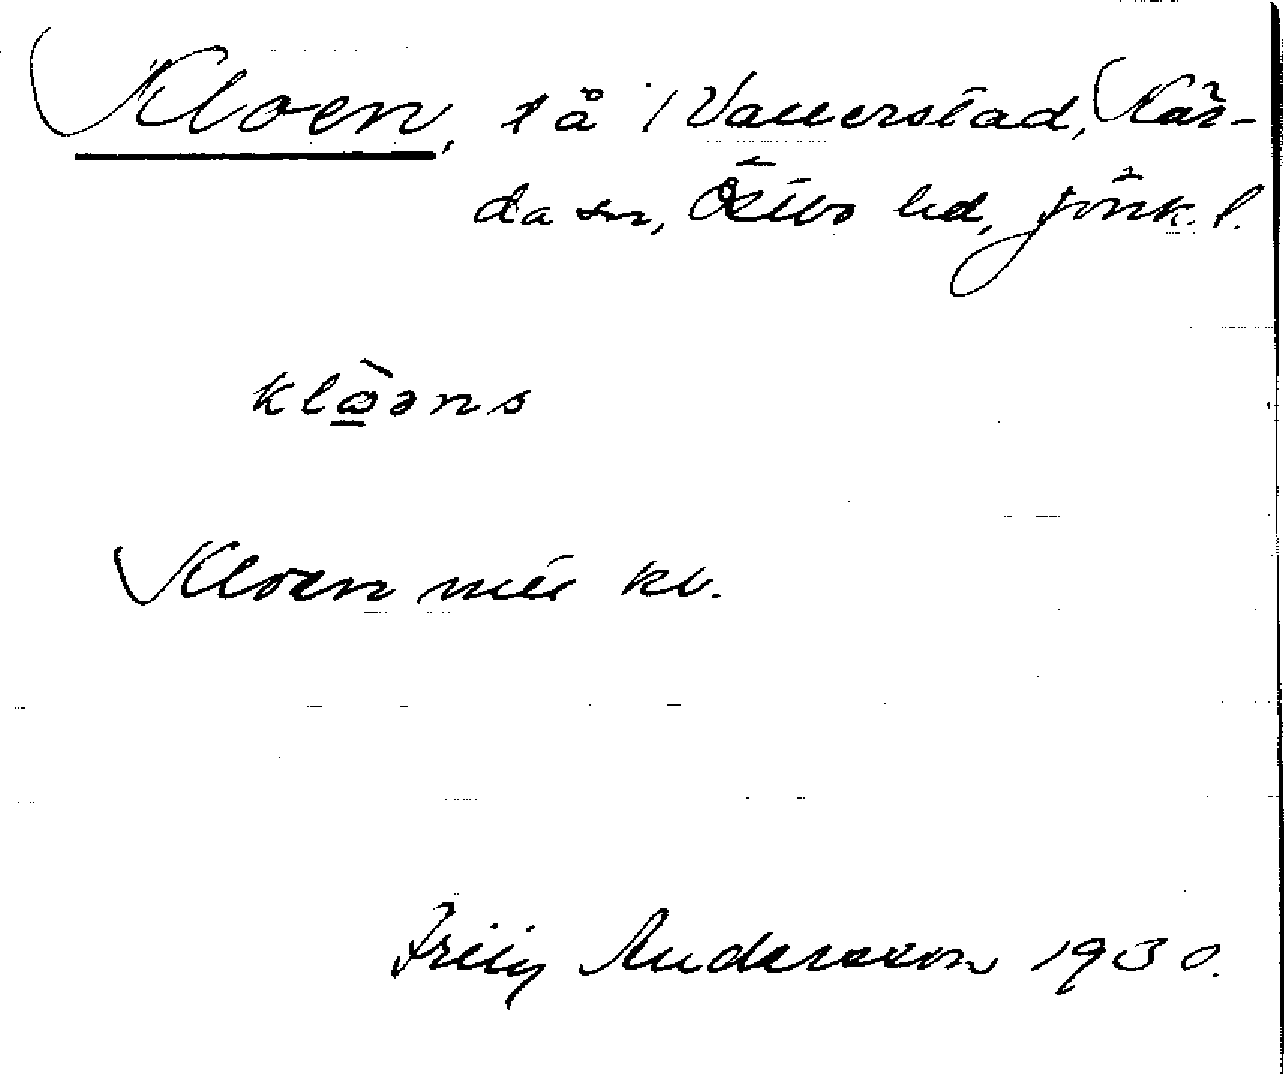 Kloen, l å i Vallerstad, Kär-
da sn, Östbo hd, Jönk. l.
Kloen
Fritz Andersson 1930.